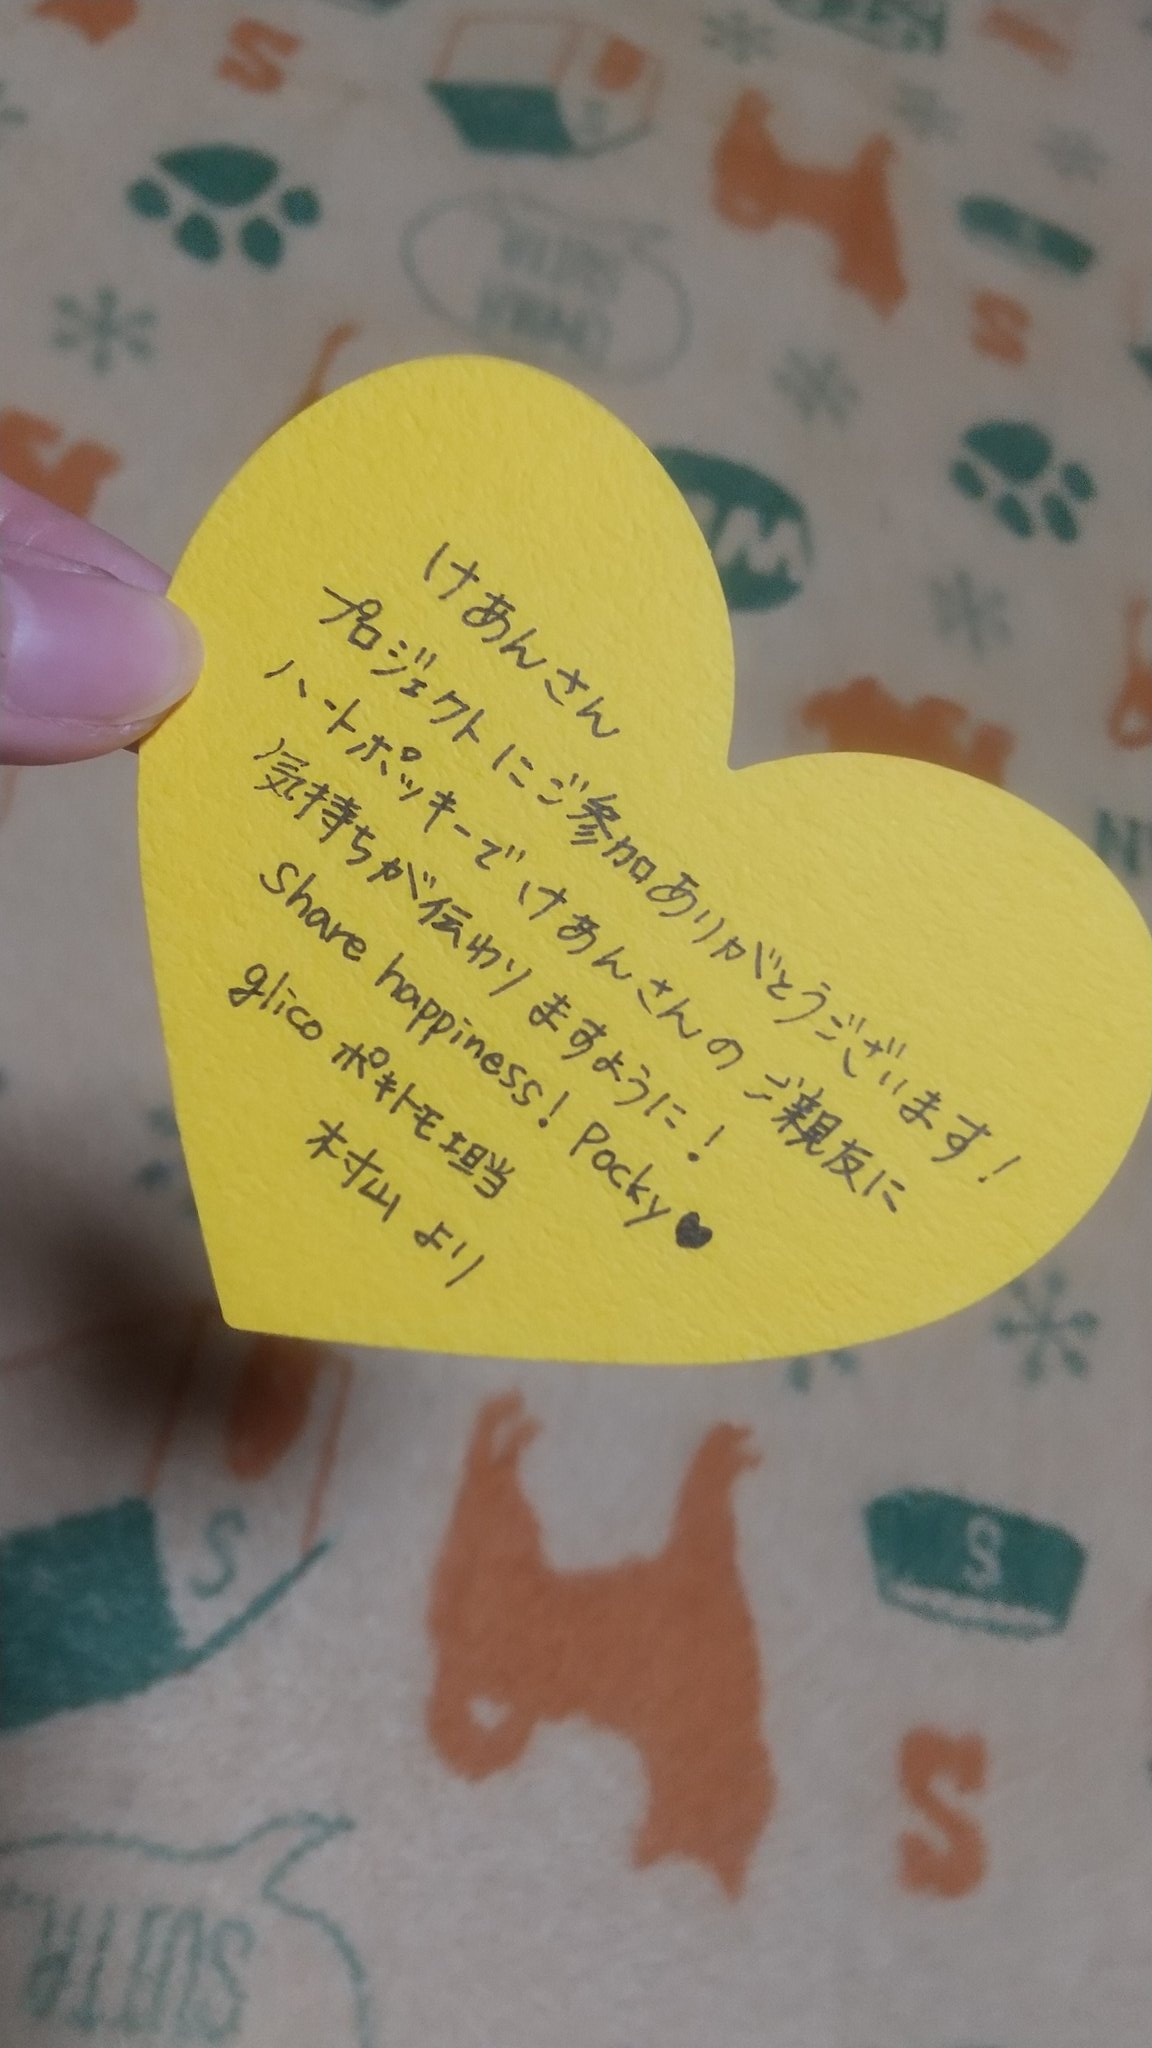 けあんさん
プロジェクトにご参加ありがとうございます!
ハートポッキーでけあんさんのご親友に
気持ちが伝わりますように!
Share happiness! Pocky♥
glico ポキトモ担当
木村山より
S
S
S
S
S